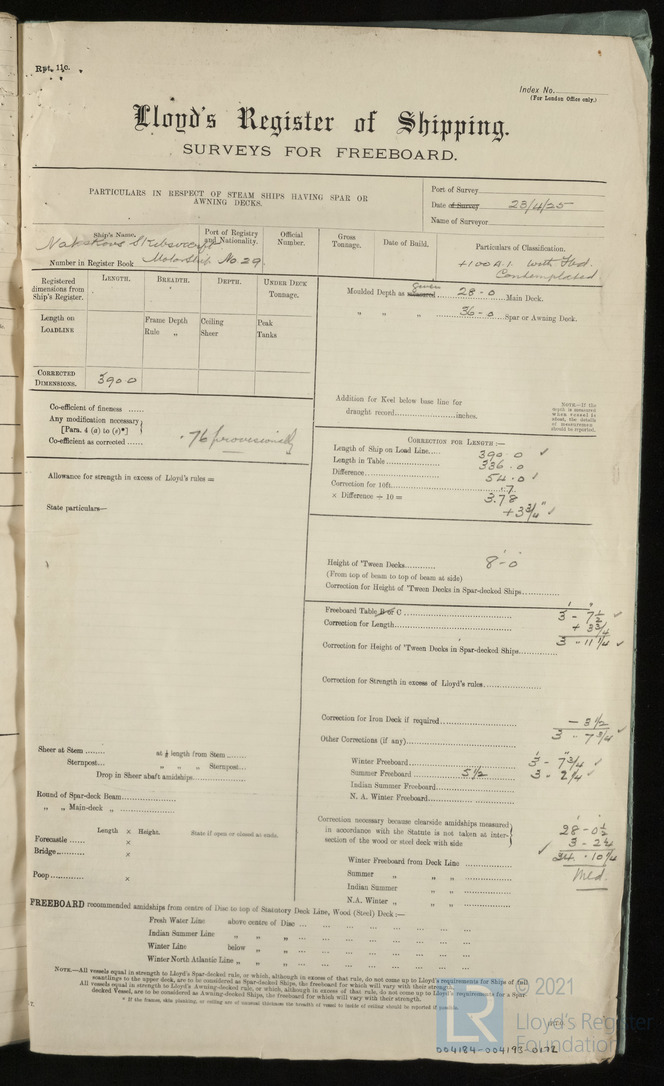 Rpt. 11c.
Index No.
(For London Office only.)
Lloyd's Register of Shipping.
SURVEYS FOR FREEBOARD.
PARTICULARS IN RESPECT OF STEAM SHIPS HAVING SPAR OR
AWNING DECKS.
Port of Survey
Date of Survey 23/4/25
Name of Surveyor
Ship's Name.
Port of Registry and Nationality.
Official Number.
Gross Tonnage.
Date of Build.
Particulars of Classification.
Nakskov Skibsværft
Motorship No 29.
Number in Register Book
+100A.1. with Fbd.
Contemplated
Registered dimensions from Ship's Register.
LENGTH.
BREADTH.
DEPTH.
UNDER DECK TONNAGE.
Length on LOADLINE
Frame Depth
Rule "
Ceiling
Sheer
Peak
Tanks
CORRECTED DIMENSIONS.
390.0
Moulded Depth as measured given 28-0 Main Deck.
" " " 36-0 Spar or Awning Deck.
Addition for Keel below base line for
draught record inches.
NOTE.—If the depth is measured when vessel is afloat, the details of measurement should be reported.
Co-efficient of fineness
Any modification necessary
[Para. 4 (a) to (e)*]
Co-efficient as corrected
.76 provisionally
CORRECTION FOR LENGTH:—
Length of Ship on Load Line 390.0 ✓
Length in Table 336.0
Difference 54.0 ✓
Correction for 10ft. .7
× Difference ÷ 10 = 3.78
+3¾" ✓
Allowance for strength in excess of Lloyd's rules =
State particulars—
Height of 'Tween Decks 8'-0
(From top of beam to top of beam at side)
Correction for Height of 'Tween Decks in Spar-decked Ships
Freeboard Table B or C 3 - 7½ ✓
Correction for Length + 3¾
3 - 11¼ ✓
Correction for Height of 'Tween Decks in Spar-decked Ships
Correction for Strength in excess of Lloyd's rules
Correction for Iron Deck if required - 3½
3 - 7¾ ✓
Other Corrections (if any)
Winter Freeboard 3 - 7¾ ✓
Summer Freeboard 5½ 3 - 2¼ ✓
Indian Summer Freeboard
N. A. Winter Freeboard
Correction necessary because clearside amidships measured
in accordance with the Statute is not taken at inter-
section of the wood or steel deck with side
28 - 0½
3 - 2¼
✓ 34 - 10¼
Med.
Winter Freeboard from Deck Line
Summer " " "
Indian Summer " "
N.A. Winter " " "
Sheer at Stem at ⅛ length from Stem
Sternpost " " " Sternpost
Drop in Sheer abaft amidships
Round of Spar-deck Beam
" " Main-deck "
Length × Height. State if open or closed at ends.
Forecastle ×
Bridge ×
Poop ×
FREEBOARD recommended amidships from centre of Disc to top of Statutory Deck Line, Wood (Steel) Deck:—
Fresh Water Line above centre of Disc
Indian Summer Line " " "
Winter Line below " "
Winter North Atlantic Line " " "
NOTE.—All vessels equal in strength to Lloyd's Spar-decked rule, or which, although in excess of that rule, do not come up to Lloyd's requirements for Ships of full
scantlings to the upper deck, are to be considered as Spar-decked Ships, the freeboard for which will vary with their strength.
All vessels equal in strength to Lloyd's Awning-decked rule, or which, although in excess of that rule, do not come up to Lloyd's requirements for a Spar
decked Vessel, are to be considered as Awning-decked Ships, the freeboard for which will vary with their strength.
* If the frames, skin planking, or ceiling are of unusual thickness the breadth of vessel to inside of ceiling should be reported if possible.
LR
© 2021
Lloyd's Register
Foundation
004184-004193-0172